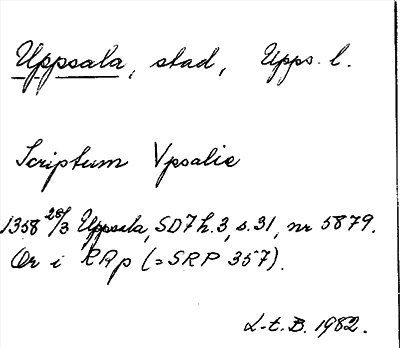 Uppsala, stad, Upps. l.
Scriptum Vpsalie
1358 28/3 Uppsala, SD7 h. 3, s. 31, nr 5879.
Or i RAp (= SRP 357).
L-t. B. 1982.